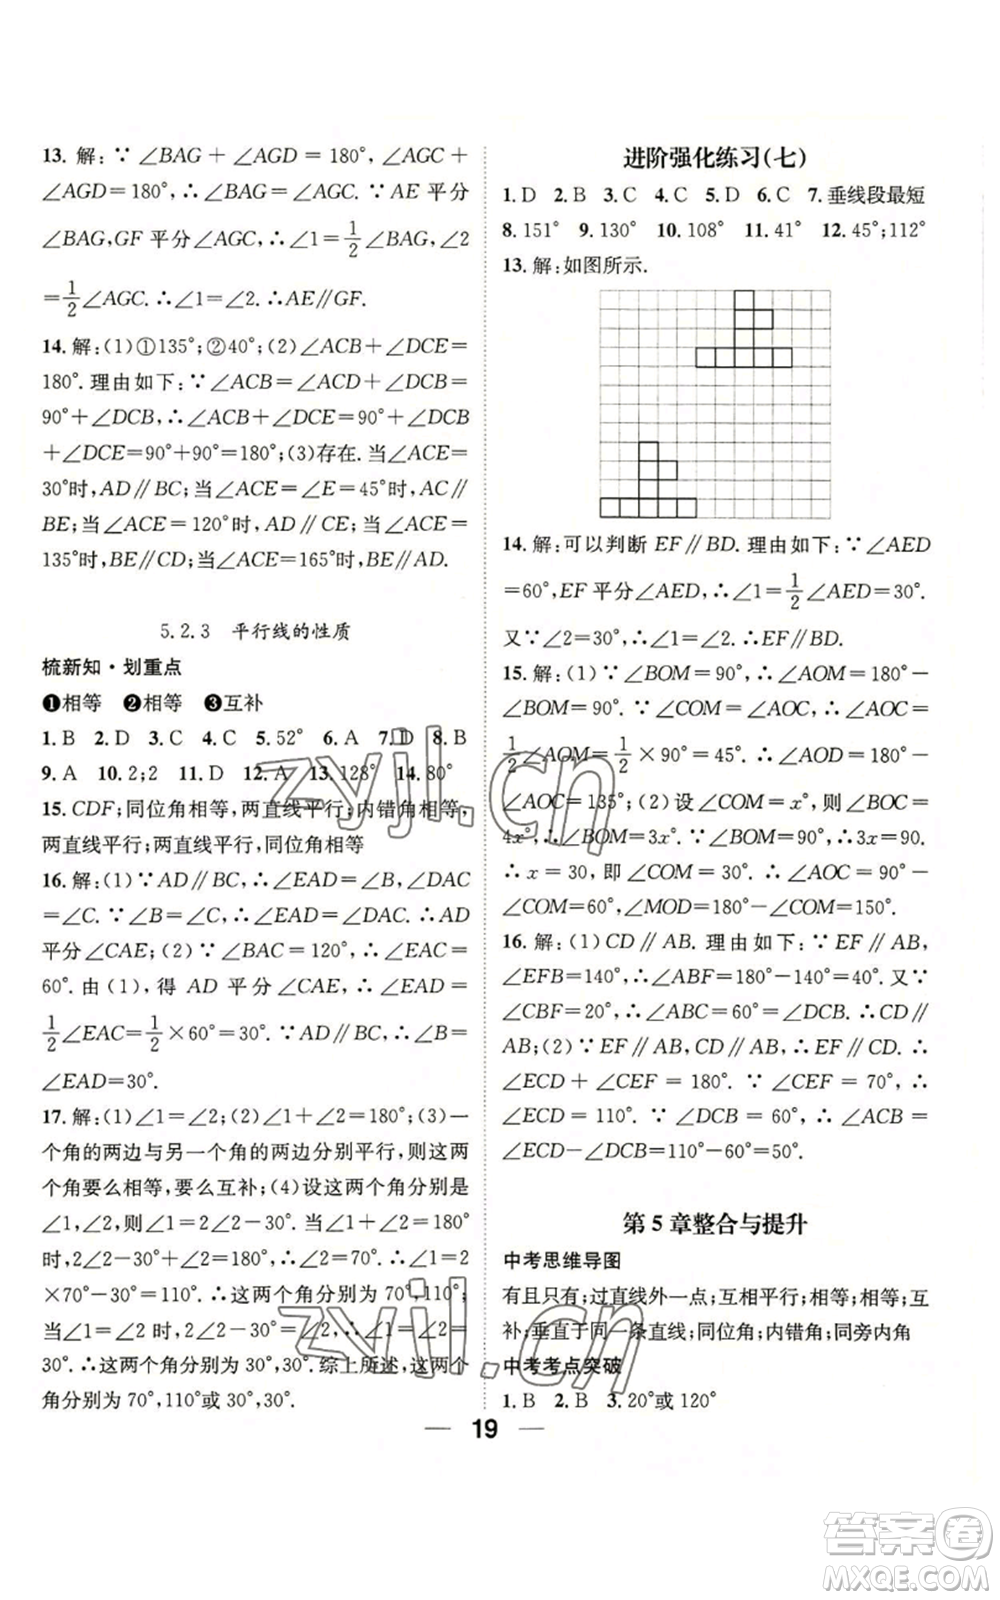 13. 解:∵ ∠BAG + ∠AGD = 180°, ∠AGC +
∠AGD=180°,∴∠BAG=∠AGC. ∵AE 平分
∠BAG,GF 平分∠AGC,∴∠1=1/2∠BAG,∠2
=1/2∠AGC. ∴∠1=∠2. ∴AE∥GF.
14. 解:(1)①135°;②40°;(2)∠ACB+∠DCE=
180°. 理由如下:∵∠ACB=∠ACD+∠DCB=
90°+∠DCB,∴∠ACB+∠DCE=90°+∠DCB
+∠DCE=90°+90°=180°;(3)存在. 当∠ACE=
30°时,AD∥BC;当∠ACE=∠E=45°时,AC∥
BE;当∠ACE=120°时,AD∥CE;当∠ACE=
135°时,BE∥CD;当∠ACE=165°时,BE∥AD.
5.2.3 平行线的性质
梳新知·划重点
❶相等 ❷相等 ❸互补
1. B 2. D 3. C 4. C 5. 52° 6. A 7. D 8. B
9. A 10. 2;2 11. D 12. A 13. 128° 14. 80°
15. CDF;同位角相等,两直线平行;内错角相等,
两直线平行;两直线平行,同位角相等
16. 解:(1)∵AD∥BC,∴∠EAD=∠B,∠DAC
=∠C. ∵∠B=∠C,∴∠EAD=∠DAC. ∴AD
平分∠CAE;(2)∵∠BAC=120°,∴∠EAC=
60°. 由(1),得 AD 平分∠CAE,∴∠EAD=
1/2∠EAC=1/2×60°=30°. ∵AD∥BC,∴∠B=
∠EAD=30°.
17. 解:(1)∠1=∠2;(2)∠1+∠2=180°;(3)一
个角的两边与另一个角的两边分别平行,则这两
个角要么相等,要么互补;(4)设这两个角分别是
∠1,∠2,且∠1=2∠2-30°. 当∠1+∠2=180°
时,2∠2-30°+∠2=180°,∴∠2=70°,∠1=2
×70°-30°=110°. ∴这两个角分别为 70°,110°;
当∠1=∠2 时,∠2=2∠2-30°,∴∠2=30°,∠1
=30°. ∴这两个角分别为 30°,30°. 综上所述,这两个
角分别为 70°,110°或 30°,30°.
进阶强化练习(七)
1. D 2. B 3. C 4. C 5. D 6. C 7. 垂线段最短
8. 151° 9. 130° 10. 108° 11. 41° 12. 45°;112°
13. 解:如图所示.
14. 解:可以判断 EF∥BD. 理由如下:∵∠AED
=60°,EF 平分∠AED,∴∠1=1/2∠AED=30°.
又∵∠2=30°,∴∠1=∠2. ∴EF∥BD.
15. 解:(1)∵∠BOM=90°,∴∠AOM=180°-
∠BOM = 90°. ∵ ∠COM = ∠AOC, ∴ ∠AOC =
1/2∠AOM=1/2×90°=45°,∴∠AOD=180°-
∠AOC=135°;(2)设∠COM=x°,则∠BOC=
4x°,∴∠BOM=3x°. ∵∠BOM=90°,∴3x=90.
∴x=30,即∠COM=30°. ∴∠AOC=90°-
∠COM=60°,∠MOD=180°-∠COM=150°.
16. 解:(1)CD∥AB. 理由如下:∵EF∥AB,
∠EFB=140°,∴∠ABF=180°-140°=40°. 又∵
∠CBF=20°,∴∠ABC=∠ABF+∠CBF=60°.
∵∠DCB=60°,∴∠DCB=∠ABC. ∴CD∥
AB;(2)∵EF∥AB,CD∥AB,∴EF∥CD. ∴
∠ECD + ∠CEF = 180°. ∵ ∠CEF = 70°, ∴
∠ECD = 110°. ∵ ∠DCB = 60°, ∴ ∠ACB =
∠ECD-∠DCB=110°-60°=50°.
第 5 章整合与提升
中考思维导图
有且只有;过直线外一点;互相平行;相等;相等;互
补;垂直于同一条直线;同位角;内错角;同旁内角
中考考点突破
1. B 2. B 3. 20°或 120°
19
zyjl.cn
zyjl.cn
答案卷
MXQE.COM